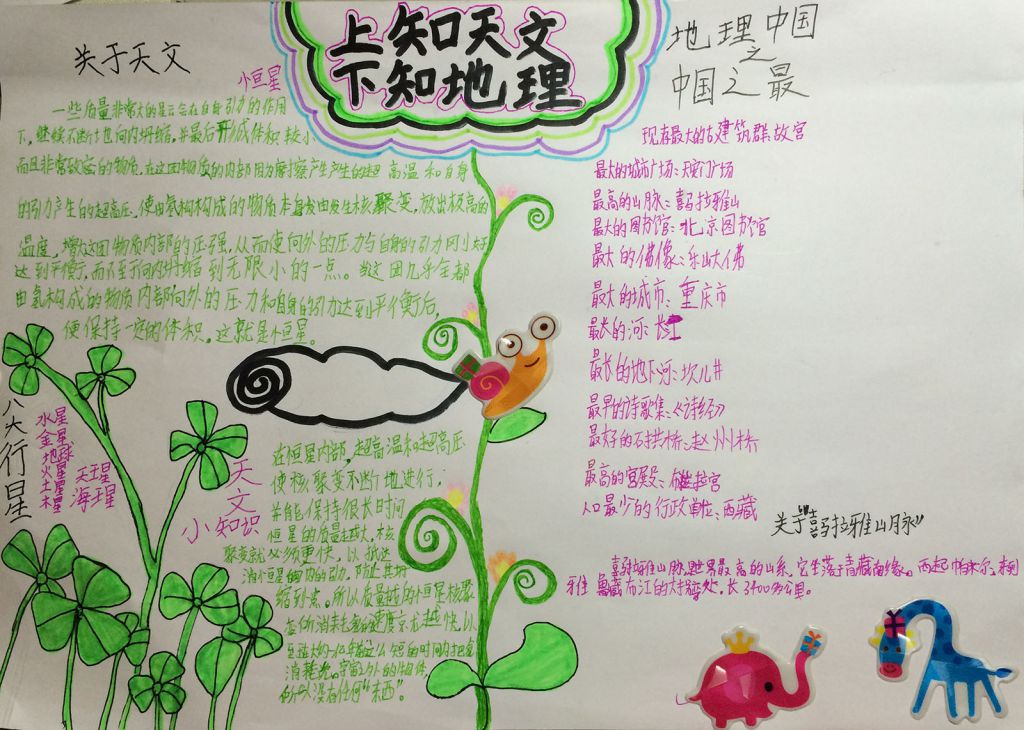 上知天文
下知地理
关于天文
恒星
一些质量非常大的星云会在自身引力的作用
下,继续不断地向内坍缩,并最后形成体积较小
而且非常致密的物质,在这团物质的内部因为摩擦产生产生的超高温和自身
的引力产生的超高压,使由氢构构成的物质本身发由发生核聚变,放出极高的
温度,增加这团物质内部的压强,从而使向外的压力与自身的引力
达到平衡,而不至于向内坍缩到无限小的一点。当这团几乎全部
由氢构成的物质内部向外的压力和自身的引力达到平衡后,
便保持一定的体积。这就是恒星。
八大行星
水星
金星
地球
火星
土星
木星
天王星
海王星
天文
小知识
在恒星内部,超高温和超高压
使核聚变不断地进行,
并能保持很长时间
恒星的质量越大,核
聚变就必须更快,以抵达
消恒星向内的引力,防止其坍
缩到点。所以质量越大的恒星核聚
变所消耗氢的速度就越快,以
消耗光。宇宙之外的物体,
所以没有任何“东西”。
地理中国
之
中国之最
现存最大的古建筑群:故宫
最大的城市广场:天安门广场
最高的山脉:喜马拉雅山
最大的图书馆:北京图书馆
最大的佛像:乐山大佛
最大的城市:重庆市
最长的河:长江
最长的地下河:坎儿井
最早的诗歌集:《诗经》
最好的石拱桥:赵州桥
最高的宫殿:布达拉宫
人口最少的行政单位:西藏
关于“喜马拉雅山脉”
喜马拉雅山脉,世界最高的山系,它坐落于青藏南缘。西起帕米尔,東到
雅鲁藏布江的大拐弯处,长2400多公里。